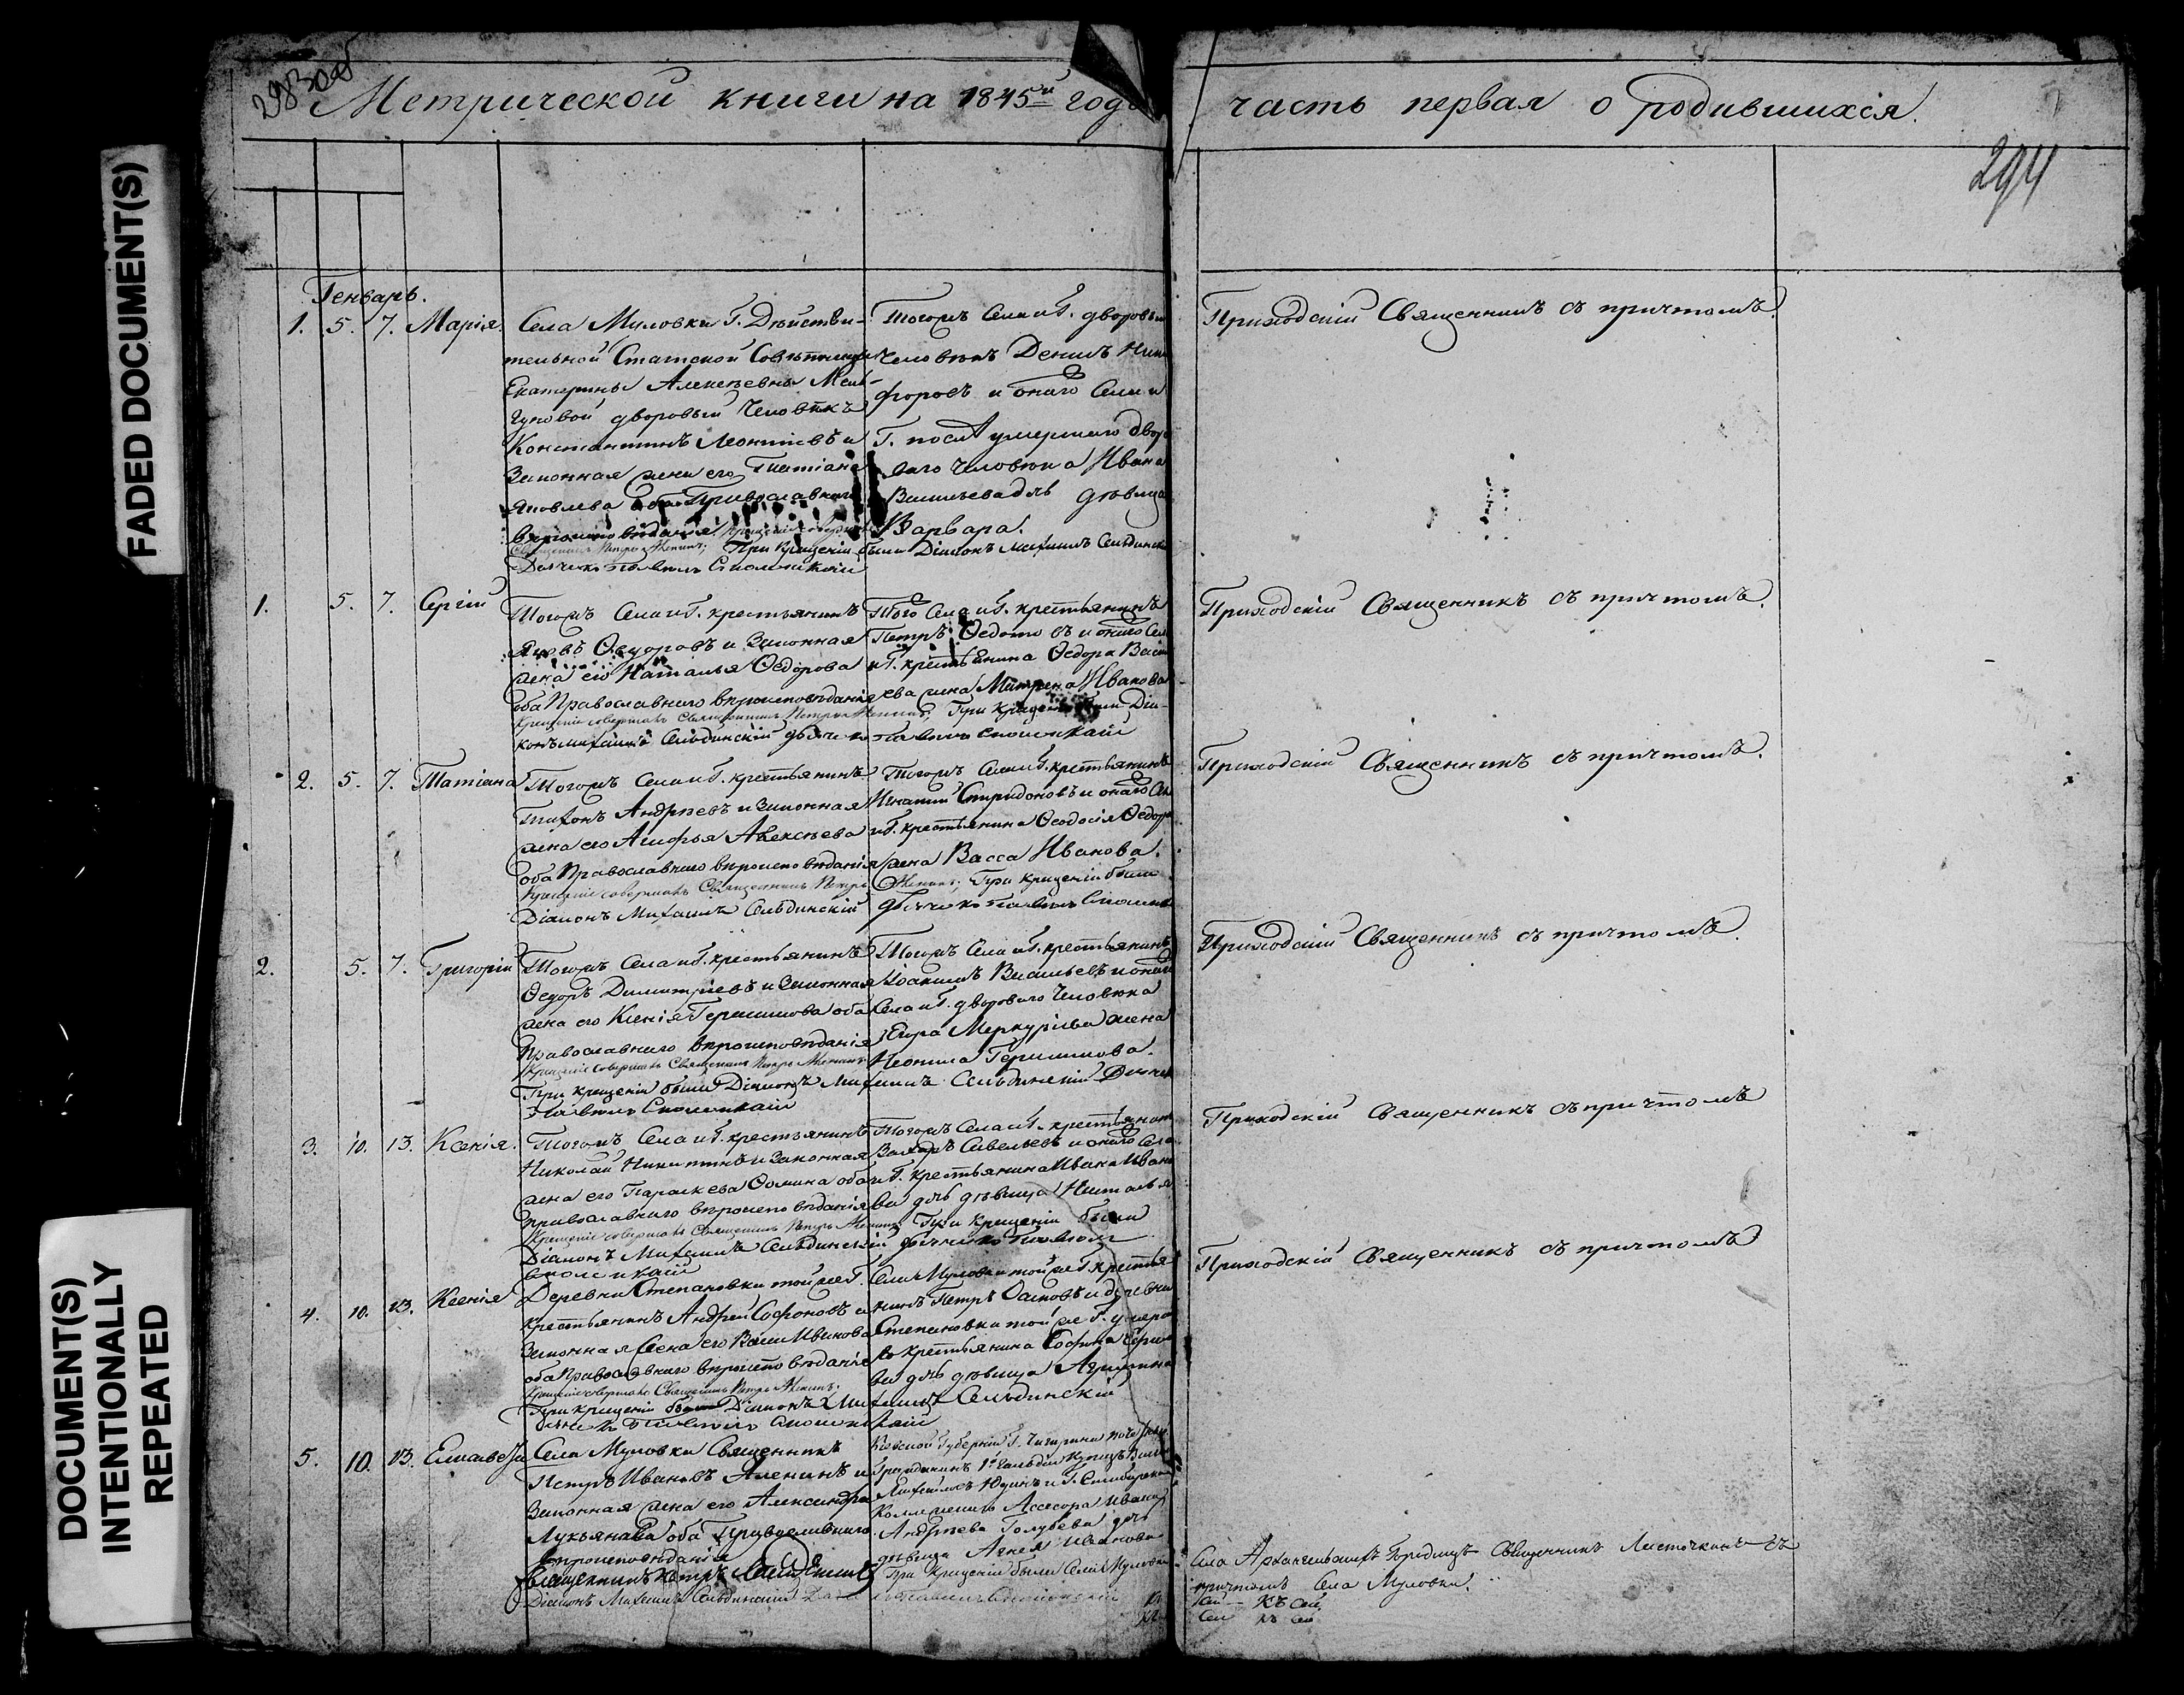 293 об
Метрической книги на 1845й годъ часть первая о родившихся.
294
Генварь.
1. 5. 7. Марія.
Села Муловки Г. Дѣйстви-
тельной Статской Совѣтницы
Екатерины Алексѣевны
дворовый человѣкъ
Константинъ Леонтіевъ и
Законная жена его Татіана
Яковлева оба Православнаго
вѣроисповѣданія. Крещеніе совершалъ
Священникъ Петръ Аленинъ; При Крещеніи были Діаконъ Михаилъ Сельдинскій
Дьячекъ Павелъ
Тогожъ Села и Г. дворовый
человѣкъ Денисъ Ники-
форовъ и онаго Села и
Г. послѣ умершаго дворо-
ваго человѣка Ивана
Васильева дочь дѣвица
Варвара.
Приходскій Священникъ съ причтомъ.
1. 5. 7. Сергій
Тогожъ Села и Г. крестьянинъ
Яковъ Ѳедоровъ и Законная
жена его Наталья Ѳедорова
оба Православнаго вѣроисповѣданія
Крещеніе совершалъ Священникъ Петръ Аленинъ; При Крещеніи были Діа-
конъ Михаилъ Сельдинскій дьячекъ Павелъ
Того Села и Г. крестьянинъ
Петръ Ѳедотовъ и онаго Села
и Г. крестьянина Ѳедора Василь-
ева жена Матрена Иванова
Приходскій Священникъ съ причтомъ.
2. 5. 7. Татіана
Тогожъ Села и Г. крестьянинъ
Тихонъ Андреевъ и Законная
жена его Агафья Алексѣева
оба Православнаго вѣроисповѣданія
Крещеніе совершалъ Священникъ Петръ Аленинъ; При Крещеніи были
Діаконъ Михаилъ Сельдинскій дьячекъ Павелъ
Тогожъ Села и Г. крестьянинъ
Игнатій Спиридоновъ и онаго Села
и Г. крестьянина Ѳеодосія Ѳедора
жена Васса Иванова.
Приходскій Священникъ съ причтомъ.
2. 5. 7. Григорій
Тогожъ Села и Г. крестьянинъ
Ѳедоръ Димитріевъ и Законная
жена его Ксенія Герасимова оба
Православнаго вѣроисповѣданія
Крещеніе совершалъ Священникъ Петръ Аленинъ.
При крещеніи были Діаконъ Михаилъ Сельдинскій Дьячекъ
Павелъ
Тогожъ Села и Г. крестьянинъ
Іоакимъ Васильевъ и онаго
Села и Г. двороваго человѣка
Егора Меркуріева жена
Неонила Герасимова.
Приходскій Священникъ съ причтомъ.
3. 10. 13. Ксенія.
Тогожъ Села и Г. крестьянинъ
Николай Никитинъ и Законная
жена его Параскева Ѳомина оба
православнаго вѣроисповѣданія
Крещеніе совершалъ Священникъ Петръ Аленинъ При Крещеніи были
Діаконъ Михаилъ Сельдинскій дьячекъ Павелъ
Тогожъ Села и Г. крестьянинъ
Захаръ Савельевъ и онаго Села
и Г. крестьянина Ивана Ивано-
ва дочь дѣвица Наталья
Приходскій Священникъ съ причтомъ
4. 10. 13. Ксенія
Деревни Степановки той же Г.
крестьянинъ Андрей Софоновъ и
Законная жена его Васса Иванова
оба Православнаго вѣроисповѣданія
Крещеніе совершалъ Священникъ Петръ Аленинъ.
При крещеніи были Діаконъ Михаилъ Сельдинскій
Села Муловки той же Г. крестья-
нинъ Петръ и деревни
Степановки той же Г.
крестьянина Софона
ва дочь дѣвица
Приходскій Священникъ съ причтомъ
5. 10. 13. Елисавета
Села Муловки Священникъ
Петръ Ивановъ Аленинъ и
Законная жена его Александра
Лукьянова оба Православнаго
вѣроисповѣданія
Священникъ Петръ Аленинъ
Діаконъ Михаилъ Сельдинскій
Кіевской Губерніи Г. Чигирина
Гражданинъ 1й Гильдіи Купецъ
Михайловъ Юдинъ и Г. Симбирска
Ассесора Ивана
Андреева Голубева дочь
дѣвица Ивановна
При крещеніи были Села Муловки
Села Архангельскаго Городищъ Священникъ Листочкинъ съ
причтомъ Села Муловки.
FADED DOCUMENT(S)
DOCUMENT(S)
INTENTIONALLY
REPEATED